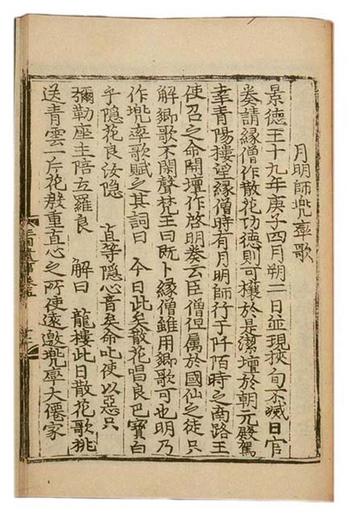 月明師兜率歌
景德王十九年庚子四月朔二日並現挾旬不滅日官
奏請緣僧作散花功德則可禳於是潔壇於朝元殿駕
幸青陽樓望緣僧時有月明師行于阡陌時之南路王
使召之命開壇作啓明奏云臣僧但属於國仙之徒只
解鄉歌不閑聲梵王曰既卜緣僧雖用鄉歌可也明乃
作兜率歌賦之其詞曰 今日此矣散花唱良巴寶白
乎隱花良汝隱 直等隱心音矣命叱使以惡只
彌勒座主陪立羅良 解曰 龍樓此日散花歌挑
送青雲一片花殷重直心之所使遠邀兜率大僊家